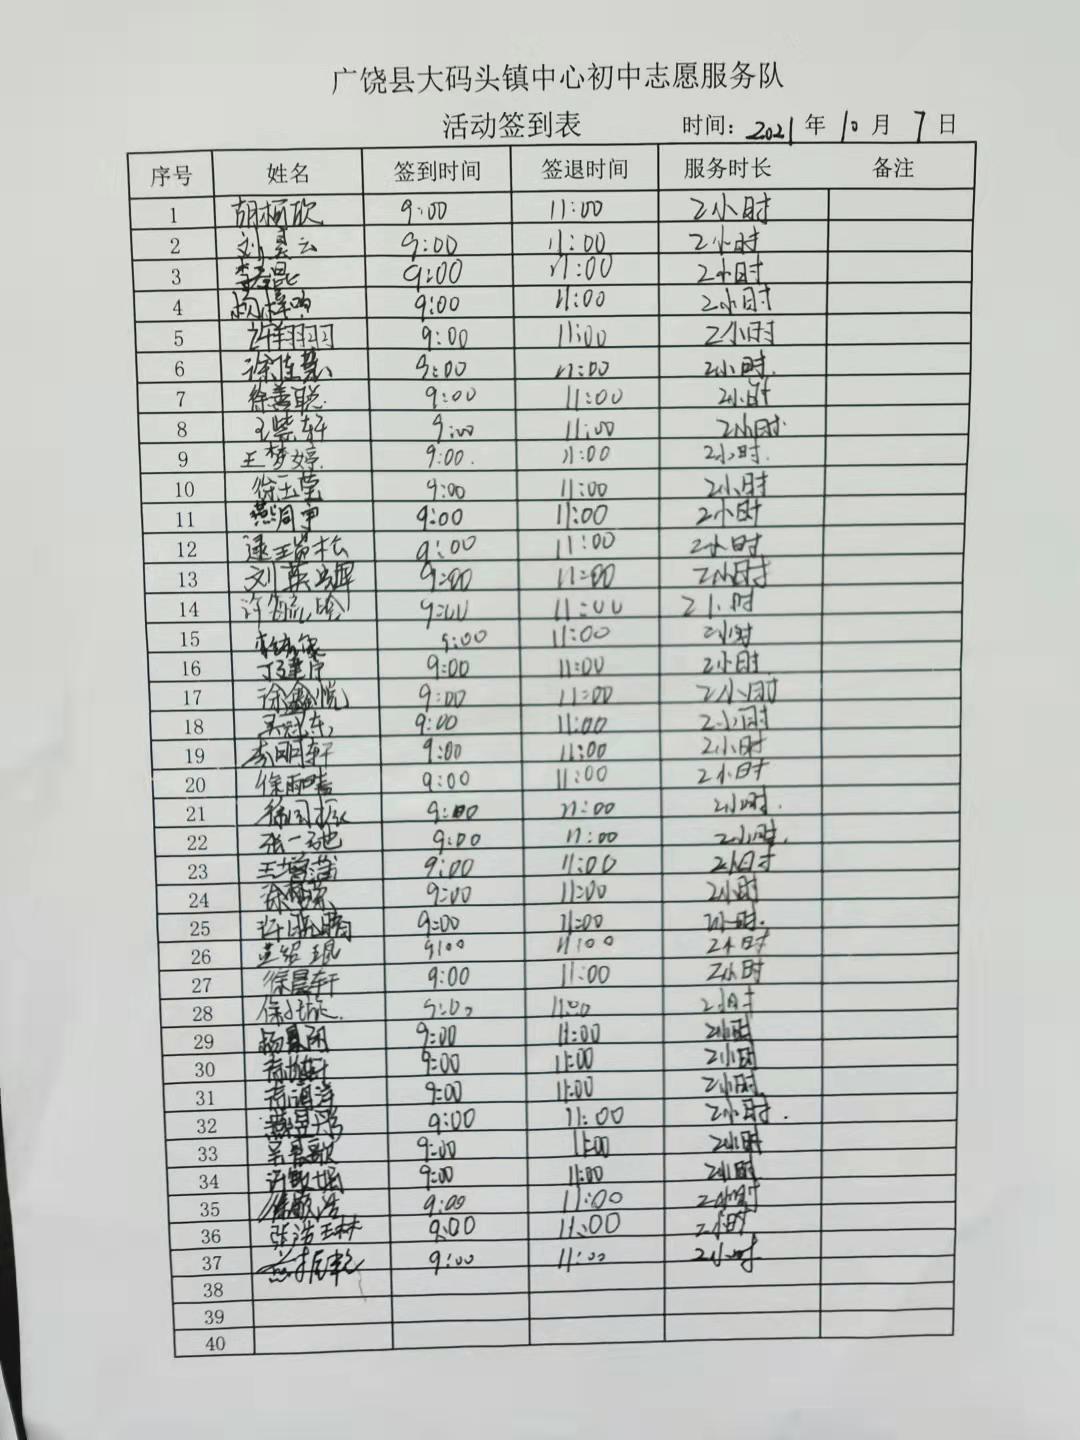 广饶县大码头镇中心初中志愿服务队
活动签到表 时间: 2021 年 10 月 7 日
序号 姓名 签到时间 签退时间 服务时长 备注
1 胡杨欣 9:00 11:00 2小时
2 刘昙云 9:00 11:00 2小时
3 9:00 11:00 2小时
4 9:00 11:00 2小时
5 许翔羽 9:00 11:00 2小时
6 徐佳慧 9:00 11:00 2小时.
7 徐善聪 9:00 11:00 2小时
8 王紫轩 9:00 11:00 2小时.
9 王梦婷 9:00. 11:00 2小时.
10 徐玉莹 9:00 11:00 2小时
11 9:00 11:00 2小时
12 逯瑞松 9:00 11:00 2小时
13 刘英辉 9:00 11:00 2小时
14 9:00 11:00 2小时
15 9:00 11:00 2小时
16 9:00 11:00 2小时
17 徐鑫悦 9:00 11:00 2小时
18 9:00 11:00 2小时
19 李明轩 9:00 11:00 2小时
20 徐雨晴 9:00 11:00 2小时
21 徐国振 9:00 11:00 2小时.
22 张一驰 9:00 11:00 2小时.
23 9:00 11:00 2小时
24 9:00 11:00 2小时
25 9:00 11:00 2小时.
26 9:00 11:00 2小时
27 徐晨轩 9:00 11:00 2小时
28 9:00 11:00 2小时
29 9:00 11:00 2小时
30 9:00 11:00 2小时
31 9:00 11:00 2小时
32 9:00 11:00 2小时.
33 9:00 11:00 2小时
34 9:00 11:00 2小时
35 9:00 11:00 2小时
36 张浩林 9:00 11:00 2小时
37 9:00 11:00 2小时
38
39
40